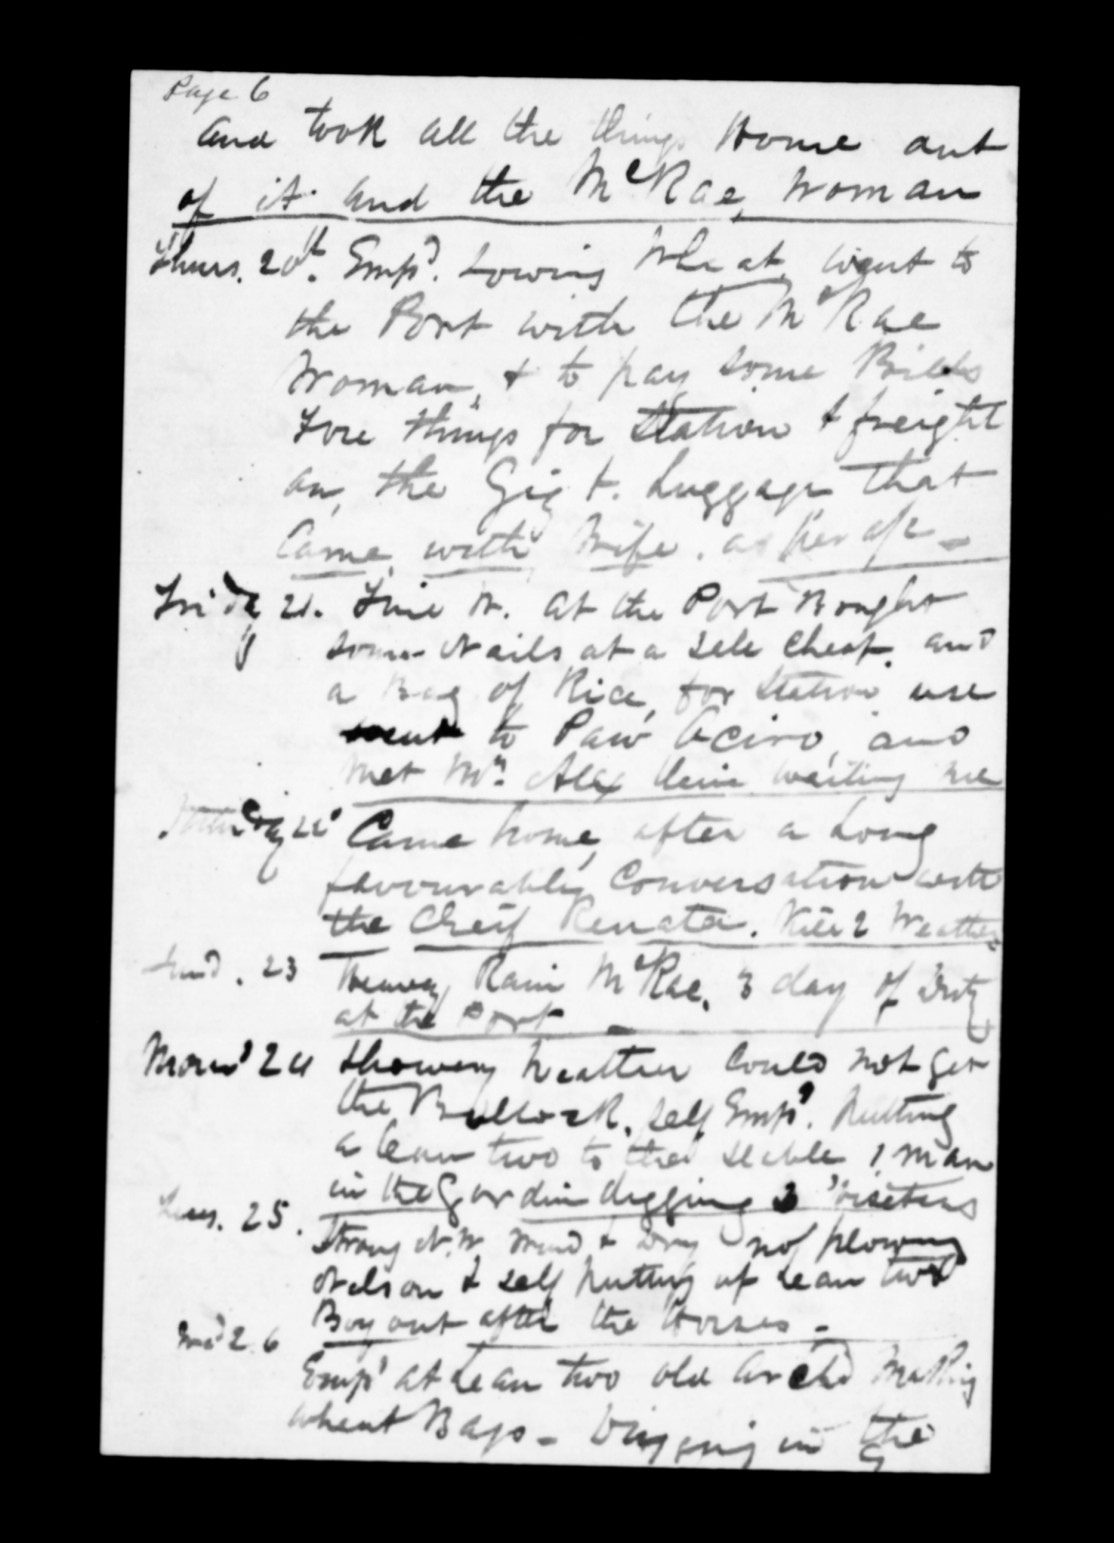 Page 6
and took all the things Home out
of it. and the McRae, Woman
Thurs. 20th. Empd. Sowing Wheat, went to
the Port with the McRae
Woman, & to pay some Bills
Fore things for Station & freight
on, the Gig &. Luggage that
Came, with Wife. as per a/c -
Friday 21. Fine W. at the Port Bought
some Nails at a sele cheap. and
a Bag of Rice, for station use
went to Paw, and
met Mr. Alex their waiting me
22 Came home, after a Long
favourably Conversation with
the Cheif Renata. 2 Weather
Sund. 23 Heavey Rain McRae. 3 day of Duty
at the Port -
Mond 24 Showery Weather Could not get
the Bullock, self Empd. Putting
a lean two to the stable, 1 man
in the Gardin digging 3 Visiters
Tues. 25. Strong N.W. Wind & Dry not plowing
Nelson & self putting up Lean two
Boy out after the Horses -
Wed 26 Empd at Lean two old Archd Making
wheat Bags - Digging in the
G